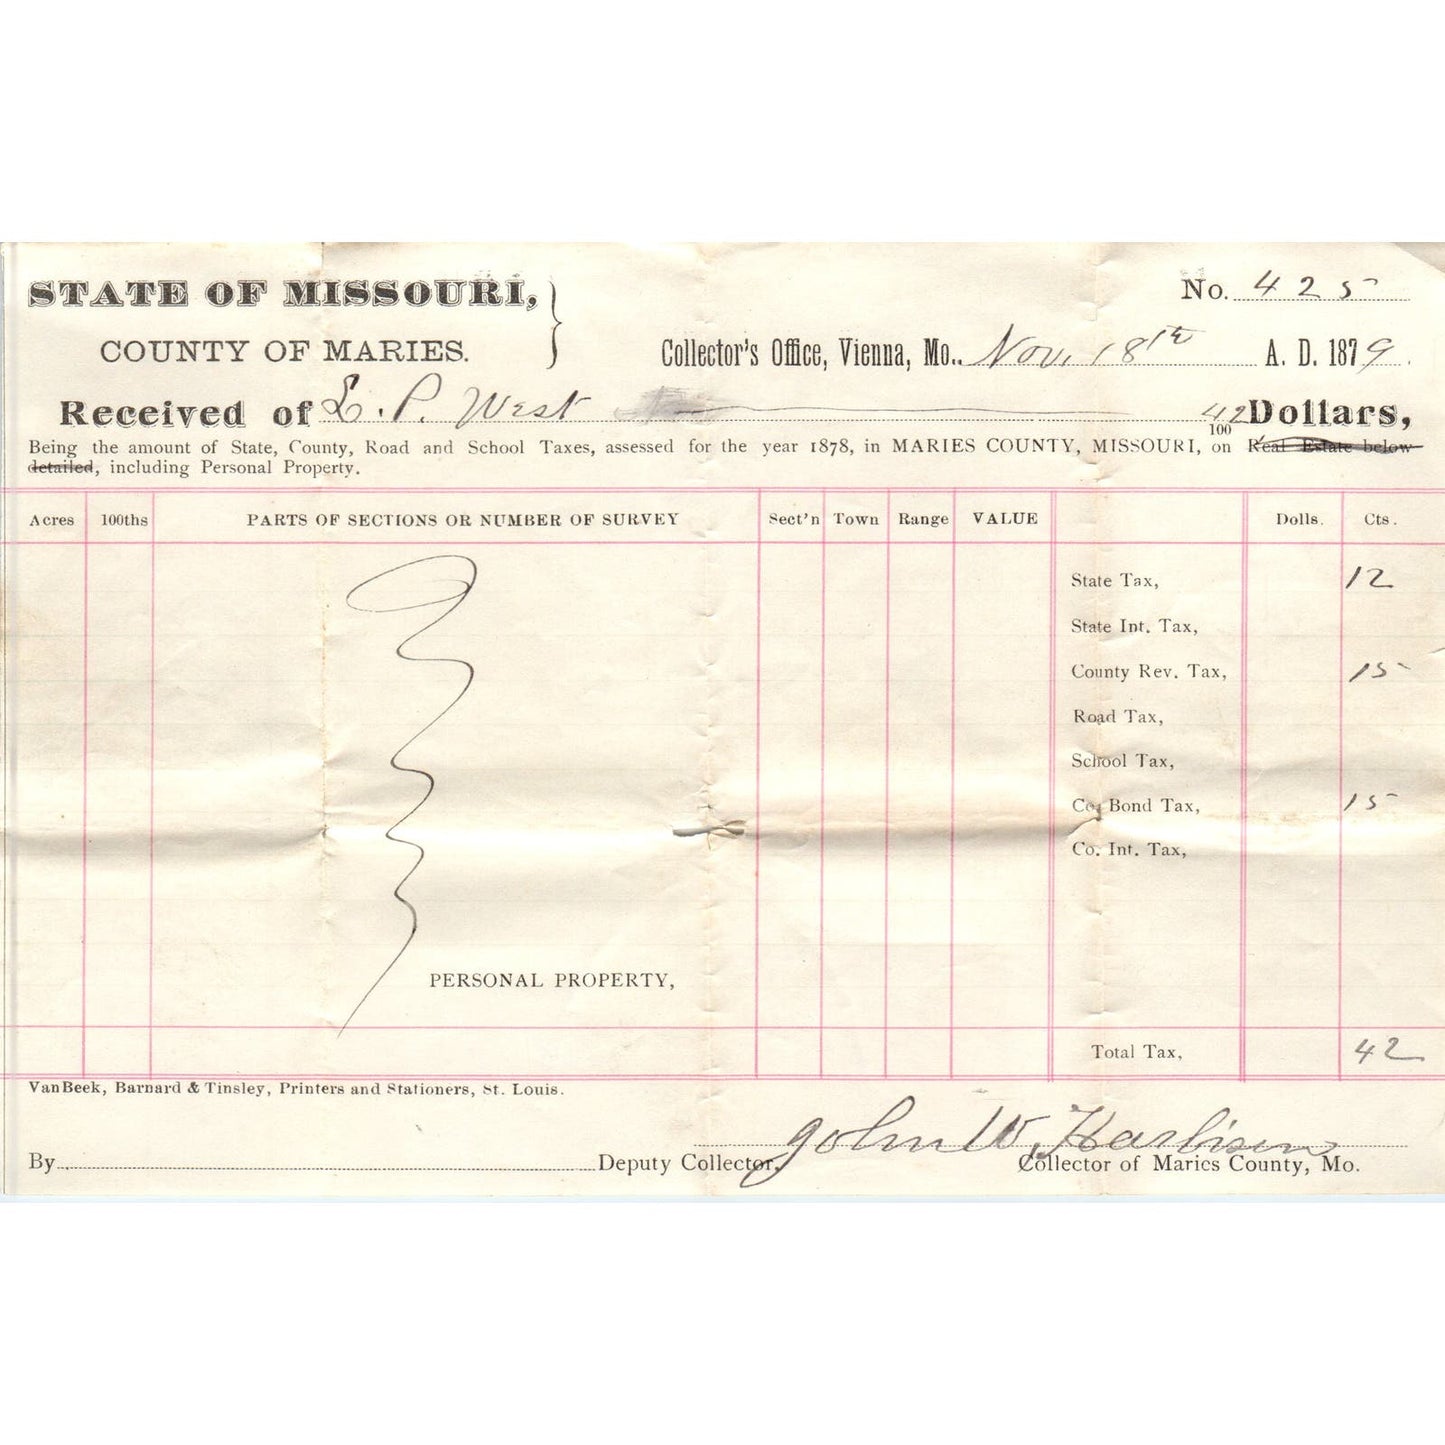 STATE OF MISSOURI,
COUNTY OF MARIES.
No. 425
Collector's Office, Vienna, Mo., Nov. 18th A. D. 1879.
Received of L. P. West 42/100 Dollars,
Being the amount of State, County, Road and School Taxes, assessed for the year 1878, in MARIES COUNTY, MISSOURI, on Real Estate below
detailed, including Personal Property.
Acres 100ths PARTS OF SECTIONS OR NUMBER OF SURVEY Sect'n Town Range VALUE Dolls. Cts.
State Tax, 12
State Int. Tax,
County Rev. Tax, 15
Road Tax,
School Tax,
Co. Bond Tax, 15
Co. Int. Tax,
PERSONAL PROPERTY,
Total Tax, 42
VanBeek, Barnard & Tinsley, Printers and Stationers, St. Louis.
John W. Harbison
By Deputy Collector, Collector of Maries County, Mo.